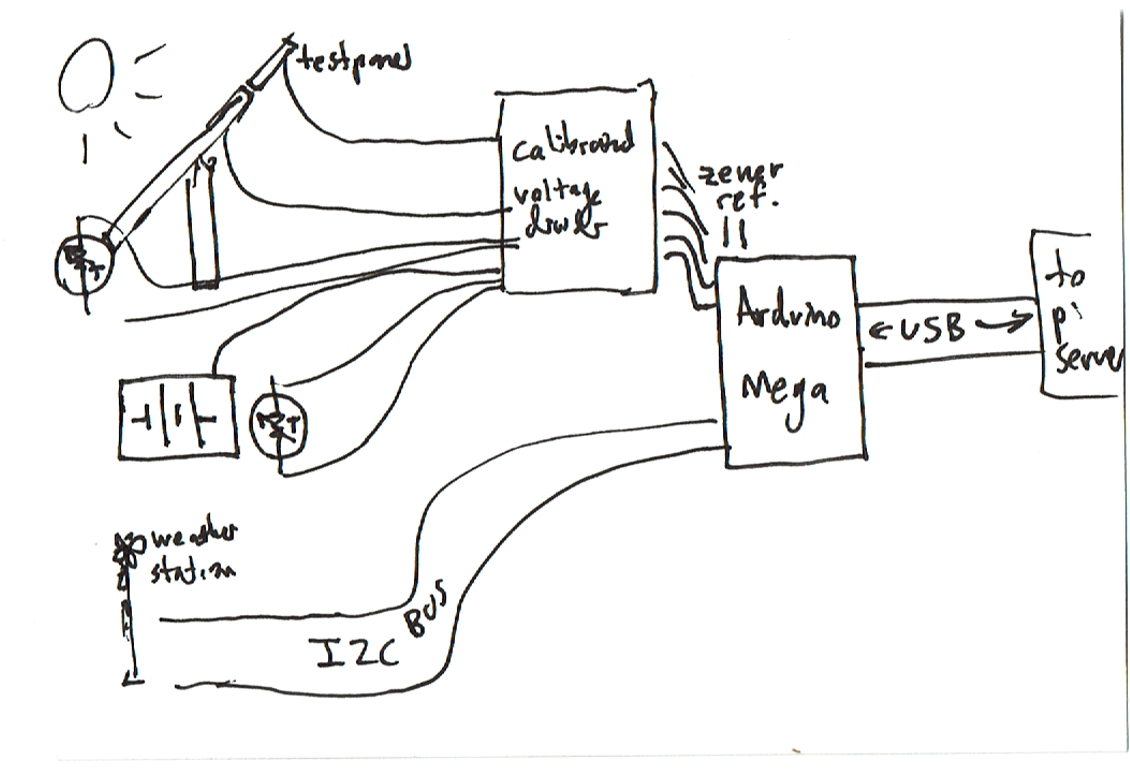 testpanel
calibrated
voltage
divider
zener
ref.
Arduino
Mega
← USB →
to
pi
server
weather
station
I2C BUS
T
T